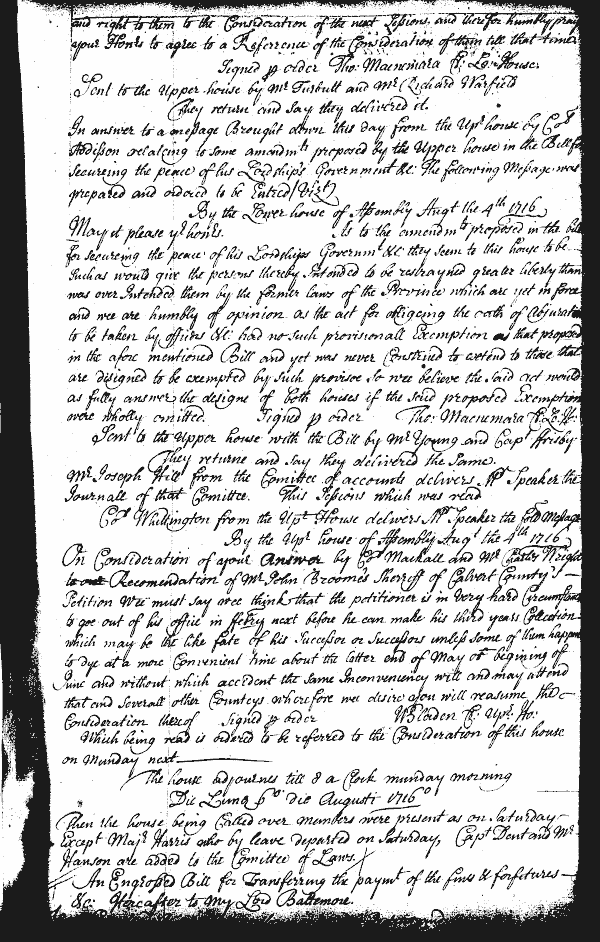 and right to them to the Consideration of the next Sessions and therefor humbly pray
your Hon:rs to agree to a Referrence of the Consideration of them till that time
Signed p order Tho: Macnemara Cl: Lo: House.
Sent to the Upper house by Mr Turbutt and Mr Richard Warfield
They return and say they delivered it.
In answer to a message Brought down this day from the Upr house by Col
Addisson relateing to some amendmts proposed by the Upper house in the Bill for
secureing the peace of his Lordships Government &c: The following Message was
prepared and ordered to be Entred / Vizt
By the Lower house of Assembly Augt the 4th 1716
May it please yr honrs. As to the amendmts proposed in the bill
for secureing the peace of his Lordships Governmt &c they seem to this house to be
Such as would give the persons thereby Intended to be restrayned greater liberty than
was ever Intended them by the former laws of the Province which are yet in force
and wee are humbly of opinion as the act for obligeing the oath of Abjuration
to be taken by officers &c: had no such provisionall Exemption as that proposed
in the afore mentioned Bill and yet was never Construed to extend to those that
are designed to be exempted by such provisoe so wee believe the said act would
as fully answer the designe of both houses if the said proposed Exemption
were wholly omitted. Signed p order Tho: Macnemara Cl: Lo: Ho:
Sent to the Upper house with the Bill by Mr Young and Capt Frisby
They returne and say they delivered the Same.
Mr Joseph Hill from the Comittee of accounts delivers Mr Speaker the
Journall of that Comittee. This Sessions which was read
Col Whittington from the Upr House delivers Mr Speaker the foll Message
By the Upr house of Assembly Augt the 4th 1716
On Consideration of your Answer by Col Mackall and Mr Charles Wright
Recomendation of Mr John Broomes Sherroff of Calvert County's
Petition Wee must say wee think that the petitioner is in Very hard Circumstances
to goe out of his office in ffebry next before he can make his third years Collection
which may be the like fate of his Successor or Successors unless some of them happen
to dye at a more Convenient time about the latter end of May or begining of
June and without which accident the same Inconveniency will and may attend
that and severall other Countys wherefore wee desire you will reasume the
Consideration thereof Signed p order W Bladen Cl: Upr: Ho:
Which being read is ordered to be referred to the Consideration of this house
on Munday next
The house adjournes till 8 a Clock munday morning
Die Lunæ 6o die Augusti 1716o
Then the house being Called over members were present as on Saturday
Except Majr Harris who by leave departed on Saturday, Capt Dent and Mr
Hanson are added to the Comittee of Laws.
An Engrossed Bill for Transferring the paymt of the fines & forfitures
&c: Hereafter to My Lord Baltemore.